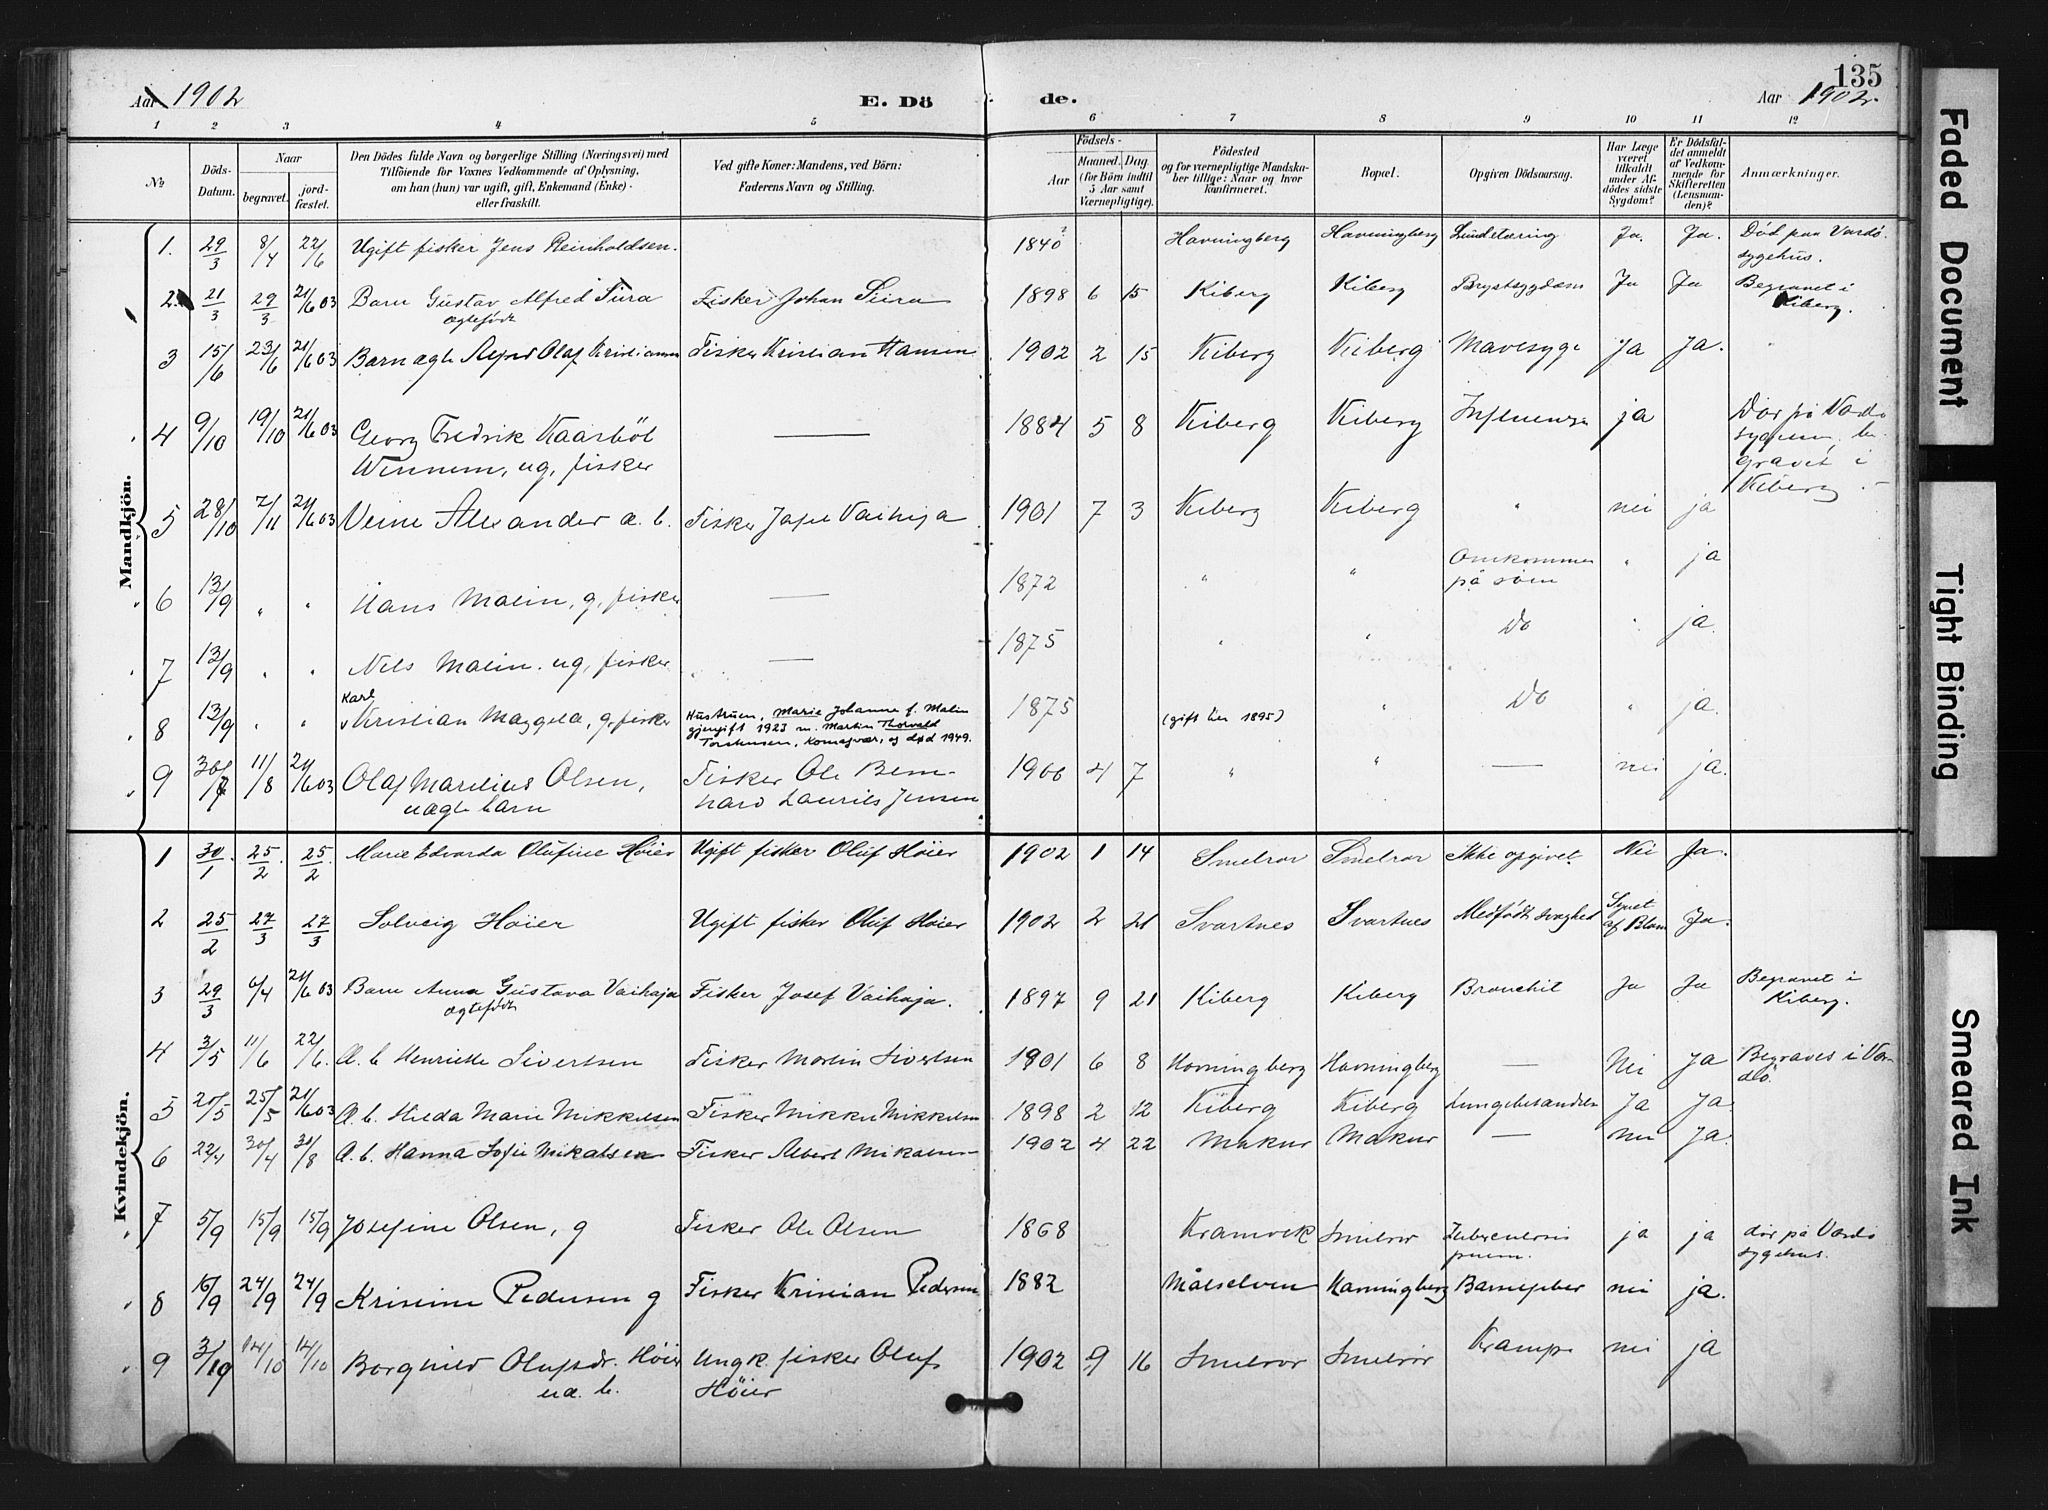 135
Aar 1902 E. Dö de. Aar 1902.
1 2 3 4 5 6 7 8 9 10 11 12
№
Döds-Datum.
Naar
begravet.
jord-fæstet.
Den Dödes fulde Navn og borgerlige Stilling (Næringsvei) med
Tilföiende for Voxnes Vedkommende af Oplysning,
om han (hun) var ugift, gift, Enkemand (Enke)
eller fraskilt.
Ved gifte Koner: Mandens, ved Börn:
Faderens Navn og Stilling.
Födsels-
Aar
Maaned. Dag.
(for Börn indtil
5 Aar samt
Værnepligtige).
Födested
og for værnepligtige Mandska-
ber tillige: Naar og hvor
konfirmeret.
Bopæl.
Opgiven Dödsaarsag.
Har Læge
været
tilkaldt
under Af-
dödes sidste
Sygdom?
Er Dödsfal-
det anmeldt
af Vedkom-
mende for
Skifteretten
(Lensman-
den)?
Anmærkninger.
Mandkjön.
1. 29/3 8/4 22/6 Ugift fisker Jens Reinholdsen. 1840? Havningberg Havningberg Lungetæring Ja. Ja. Død paa Vardø
sygehus.
2. 21/3 29/3 21/6 03 Barn Gustav Alfred Siira Fisker Johan Siira 1898 6 15 Kiberg Kiberg Brystsygdom Ja Ja Begravet i
ægtefødt Kiberg.
3 15/6 23/6 21/6 03 Barn ægte Alfred Olaf Kristiansen Fisker Kristian Hansen 1902 2 15 Kiberg Kiberg Mavesyge Ja Ja.
4 9/10 19/10 21/6 03 Georg Fredrik Kaarbøl 1884 5 8 Kiberg Kiberg Influensa ja Dør på Vardø
Wennem, ug, fisker sygehus, be-
gravet i
Kiberg.
5 28/10 7/11 21/6 03 Veine Alexander æ. b. Fisker Josef Vaihija 1901 7 3 Kiberg Kiberg " nei ja
6 13/9 " " Hans Malin, g, fisker — 1872 " " Omkommen
på søen " ja
7 13/9 " " Nils Malin. ug, fisker — 1875 " " Do " ja.
Karl
8 13/9 " " Kristian Maggela, g, fisker Hustruen, Marie Johanne f. Malin
gjengift 1923 m. Martin Thorvald
Torstensen, Komagvær, og død 1949. 1875 (gift her 1895) " Do " ja.
9 30/7 11/8 21/6 03 Olaf Marelius Olsen, Fisker Ole Bern- 1900 4 7 " " — nei ja.
uægte barn hard Laurits Jensen
Kvindekjön.
1 30/1 25/2 25/2 Marie Edvarda Olufine Høier Ugift fisker Oluf Høier 1902 1 14 Smelror Smelror Ikke opgivet. Nei Ja.
2 25/2 27/3 27/3 Solveig Høier Ugift fisker Oluf Høier 1902 2 21 Svartnes Svartnes Medfødt svaghed Synet
af Blom Ja.
3 29/3 6/4 21/6 03 Barn Anna Gustava Vaihaja Fisker Josef Vaihaja. 1897 9 21 Kiberg Kiberg Bronchit Ja Ja Begravet i
ægtefødt Kiberg.
4 3/5 11/6 22/6. Æ. b Henriette Sivertsen Fisker Martin Sivertsen 1901 6 8 Havningberg Havningberg — Nei Ja Begraves i Var-
dø.
5 20/5 25/5 21/6 03 Æ. b. Hilda Marie Mikkelsen Fisker Mikkel Mikkelsen 1898 2 12 Kiberg Kiberg Lungebetændelse Ja Ja.
6 22/4 30/4 31/8 Æ. b. Hanna Sofie Mikalsen Fisker Albert Mikalsen 1902 4 22 Makur Makur — nei Ja.
7 5/9 15/9 15/9 Josefine Olsen, g Fisker Ole Olsen 1868 Kramvik Smelror Tuberculosis
pulm. ja ja dør på Vardø
sygehus.
8 16/9 24/9 24/9 Kristine Pedersen g Fisker Kristian Pedersen 1882 Målselven Havningberg Barselfeber nei ja.
9 3/10 14/10 14/10 Borghild Olufsdr. Høier Ungk. fisker Oluf 1902 9 16 Smelror Smelror Krampe nei ja
ua. b. Høier
Faded Document
Tight Binding
Smeared Ink